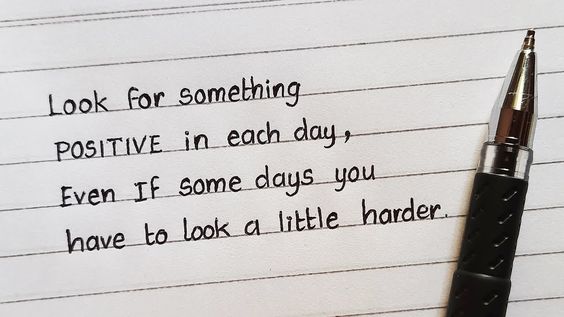 Look for something
POSITIVE in each day,
Even If some days you
have to look a little harder.